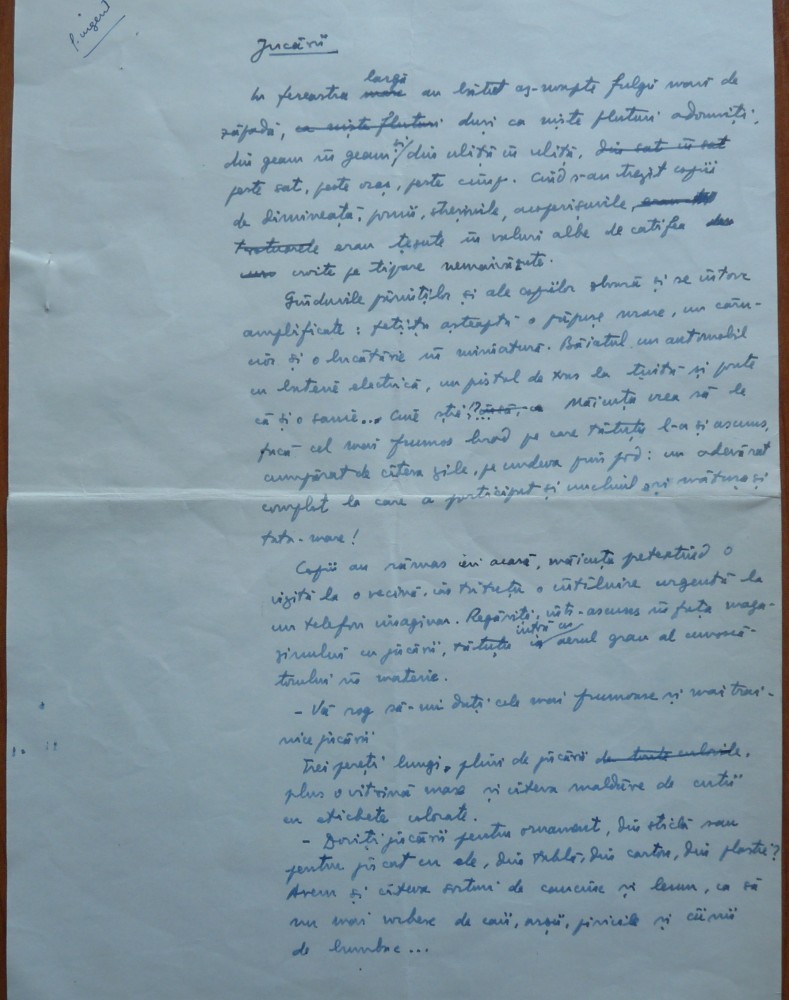 p. urgent
Jucării
In fereastra largă mare au bătut az-noapte fulgii mari de
zăpadă, ca niște fluturi duși ca niște fluturi adormiți,
din geam în geam și din uliță în uliță, din sat în sat
peste sat, peste oraș, peste cîmp. Cînd s-au trezit copiii
de dimineață, pomii, streșinile, acoperișurile,
trotuarele erau țesute în valuri albe de catifea
croite pe tipare nemaivăzute.
Gîndurile părinților și ale copiilor zboară și se întorc
amplificate: fetița așteaptă o păpușe mare, un căru-
cior și o bucătărie în miniatură. Băiatul un automobil
cu baterie electrică, un pistol de tras la țintă și poate
că și o sanie... Cine știe! Măicuța vrea să le
facă cel mai frumos brad pe care tătuțu l-a și ascuns,
cumpărat de cîteva zile, pe undeva prin pod: un adevărat
complot la care a participat și unchiul și mătușa și
tata-mare!
Copiii au rămas ieri acasă, măicuța pretextînd o
vizită la o vecină, iar tătuțu o întîlnire urgentă la
un telefon imaginar. Regăsiți, într-ascuns în fața maga-
zinului cu jucării, tătuțu intră cu aerul grav al cunoscă-
torului în materie.
- Vă rog să-mi dați cele mai frumoase și mai trai-
nice jucării
Trei pereți lungi, plini de jucării de toate culorile,
plus o vitrină mare și cîteva maldăre de cutii
cu etichete colorate.
- Doriți jucării pentru ornament, din sticlă sau
pentru jucat cu ele, din tablă, din carton, din plastic?
Avem și cîteva sorturi de cauciuc și lemn, ca să
nu mai vorbesc de caii, urșii, pisicile și cîinii
de bumbac...